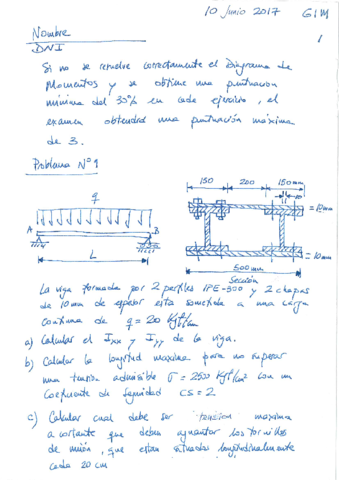 10 Junio 2017 GIM
1
Nombre
DNI
Si no se resuelve correctamente el Diagrama de
Momentos y se obtiene una puntuación
mínima del 30% en cada ejercicio, el
examen obtendrá una puntuación máxima
de 3.
Problema Nº 1
150 200 150mm
q
= 10mm
A B
L
= 10mm
500mm
Sección
La viga formada por 2 perfiles IPE-500 y 2 chapas
de 10mm de espesor esta sometida a una carga
continua de q = 20 Kgf/cm
a) Calcular el Ixx y Iyy de la viga.
b) Calcular la longitud maxima para no superar
una tensión admisible σ = 2500 Kgf/cm² con un
coeficiente de seguridad CS = 2
c) Calcular cual debe ser tension maxima
a cortante que deben aguantar los tornillos
de unión, que estan situados longitudinalmente
cada 20 cm